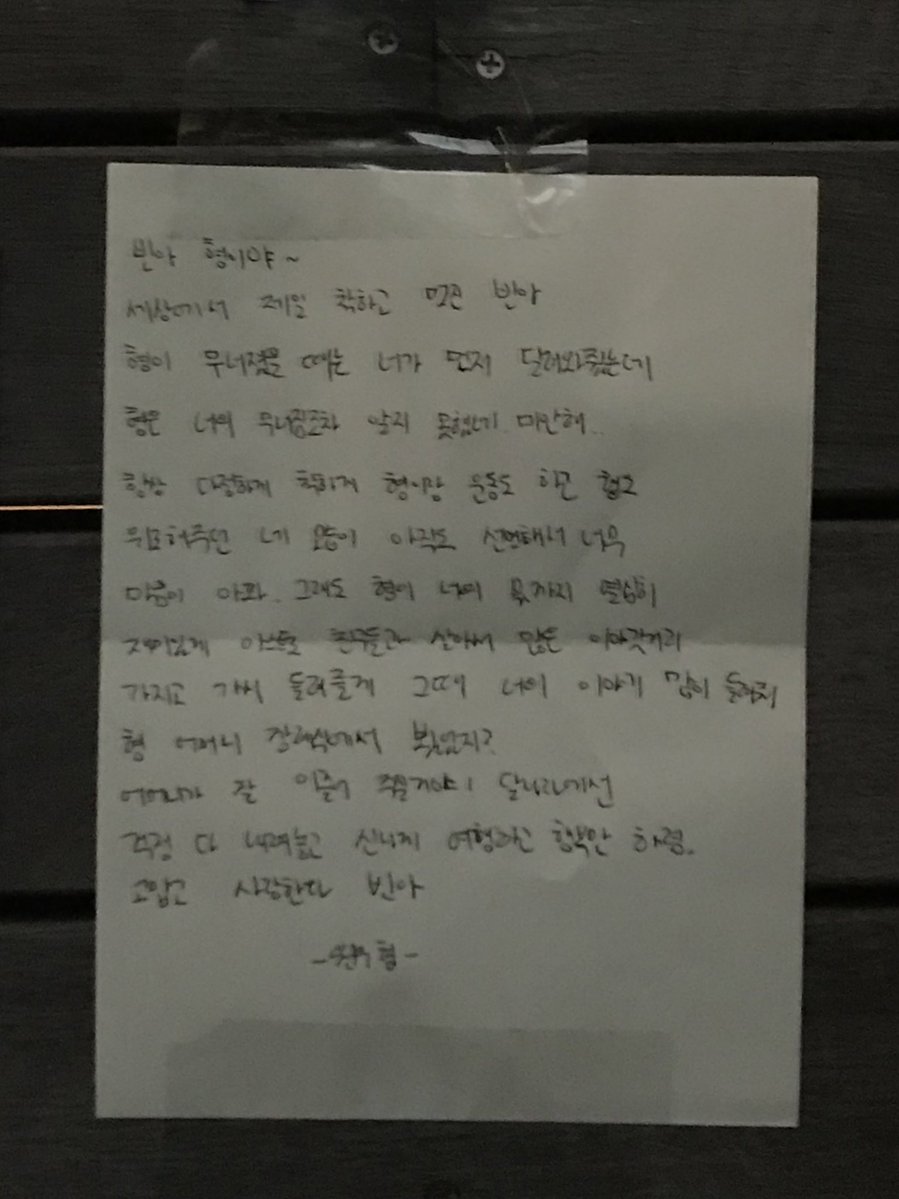 빈아 형이야~
세상에서 제일 착하고 멋진 빈아
형이 무너졌을 때는 너가 먼저 달려와줬는데
형은 너의 무너짐조차 알지 못했네. 미안해..
항상 다정하게 착하게 형이랑 운동도 하고
위로해주던 네 모습이 아직도 선명해서 너무
마음이 아파. 그래도 형이 너의 몫까지 열심히
재미있게 아스트로 친구들과 살아서 많은 이야깃거리
가지고 가서 들려줄게 그때 너의 이야기 많이 들려줘
형 어머니 장례식에서 뵈었지?
어머니가 잘 이끌어 주실거야! 달나라에선
걱정 다 내려놓고 신나게 여행하고 행복만 하렴.
고맙고 사랑한다 빈아
형-